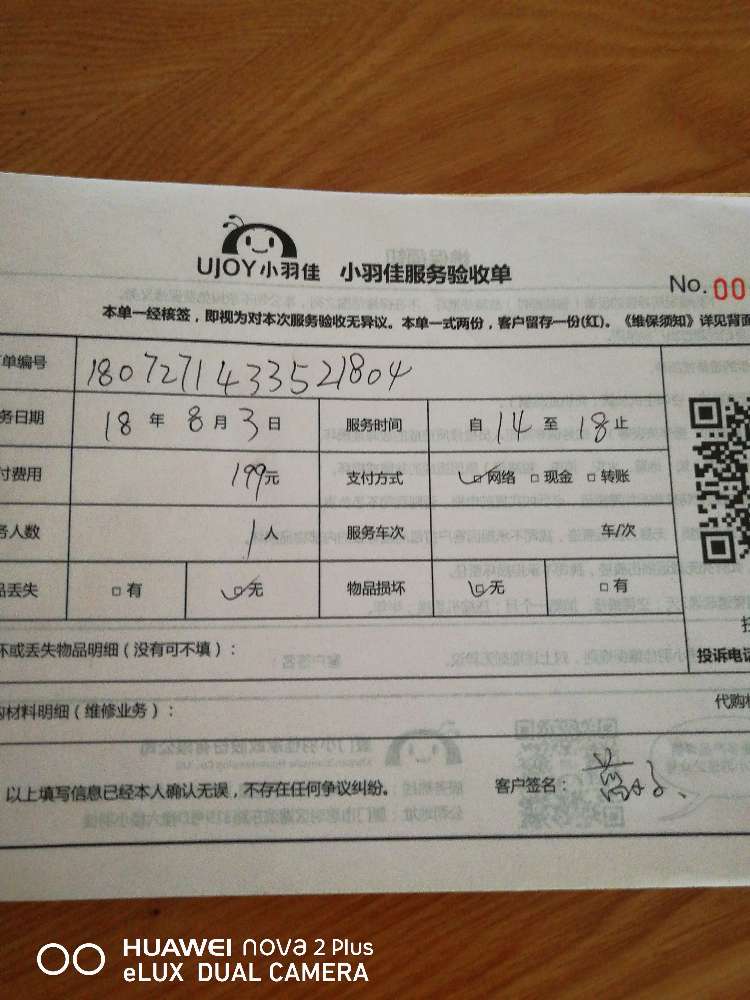 UJOY小羽佳 小羽佳服务验收单
No. 00
本单一经核签，即视为对本次服务验收无异议。本单一式两份，客户留存一份(红)。《维保须知》详见背面
单编号 1807271433521804
务日期 18 年 8 月 3 日 服务时间 自 14 至 18 止
付费用 199元 支付方式 网络 现金 转账
务人数 1人 服务车次 车/次
品丢失 有 无 物品损坏 无 有
坏或丢失物品明细（没有可不填）：
投诉电话
购材料明细（维修业务）：
代购
以上填写信息已经本人确认无误，不存在任何争议纠纷。 客户签名：
HUAWEI nova 2 Plus
eLUX DUAL CAMERA